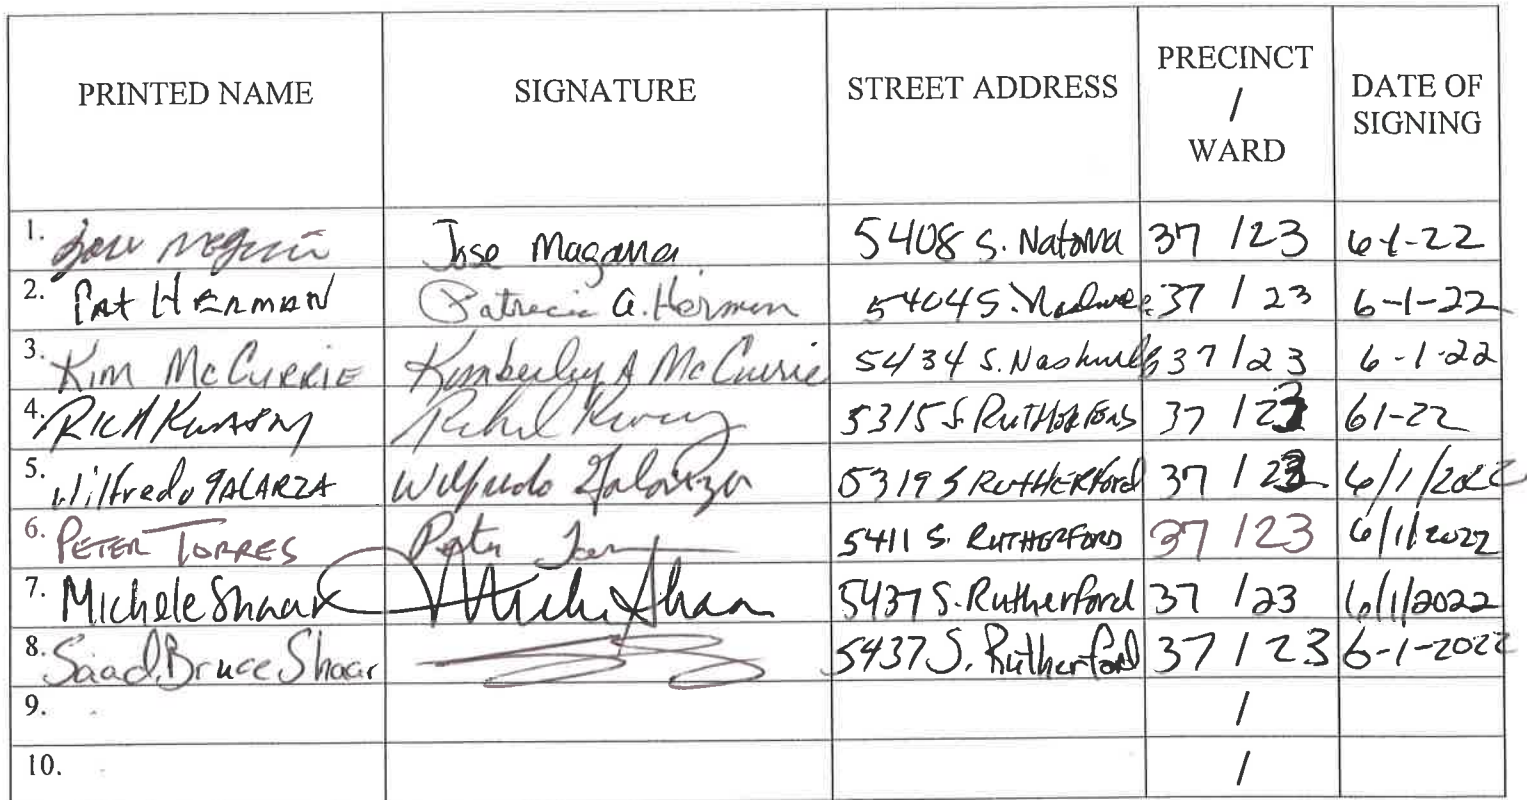 PRINTED NAME SIGNATURE STREET ADDRESS PRECINCT / WARD DATE OF SIGNING
1. Jose Magana 5408 S. Natoma 37 / 23 6-1-22
2. Pat HERMAN Patricia A. Herman 5404 S. 37 / 23 6-1-22
3. Kim McCURRIE Kimberley A McCurrie 5434 S. Nashville 37 / 23 6-1-22
4. RICH 5315 S. RUTHERFORD 37 / 23 61-22
5. Wilfredo GALARZA Wilfredo Galarza 5319 S RUTHERFord 37 / 23 6/1/2022
6. PETER TORRES Peter 5411 S. RUTHERFORD 37 / 23 6/1/2022
7. Michele Shaar 5437 S. Rutherford 37 / 23 6/1/2022
8. Saad Bruce Shaar 5437 S. Rutherford 37 / 23 6-1-2022
9. /
10. /